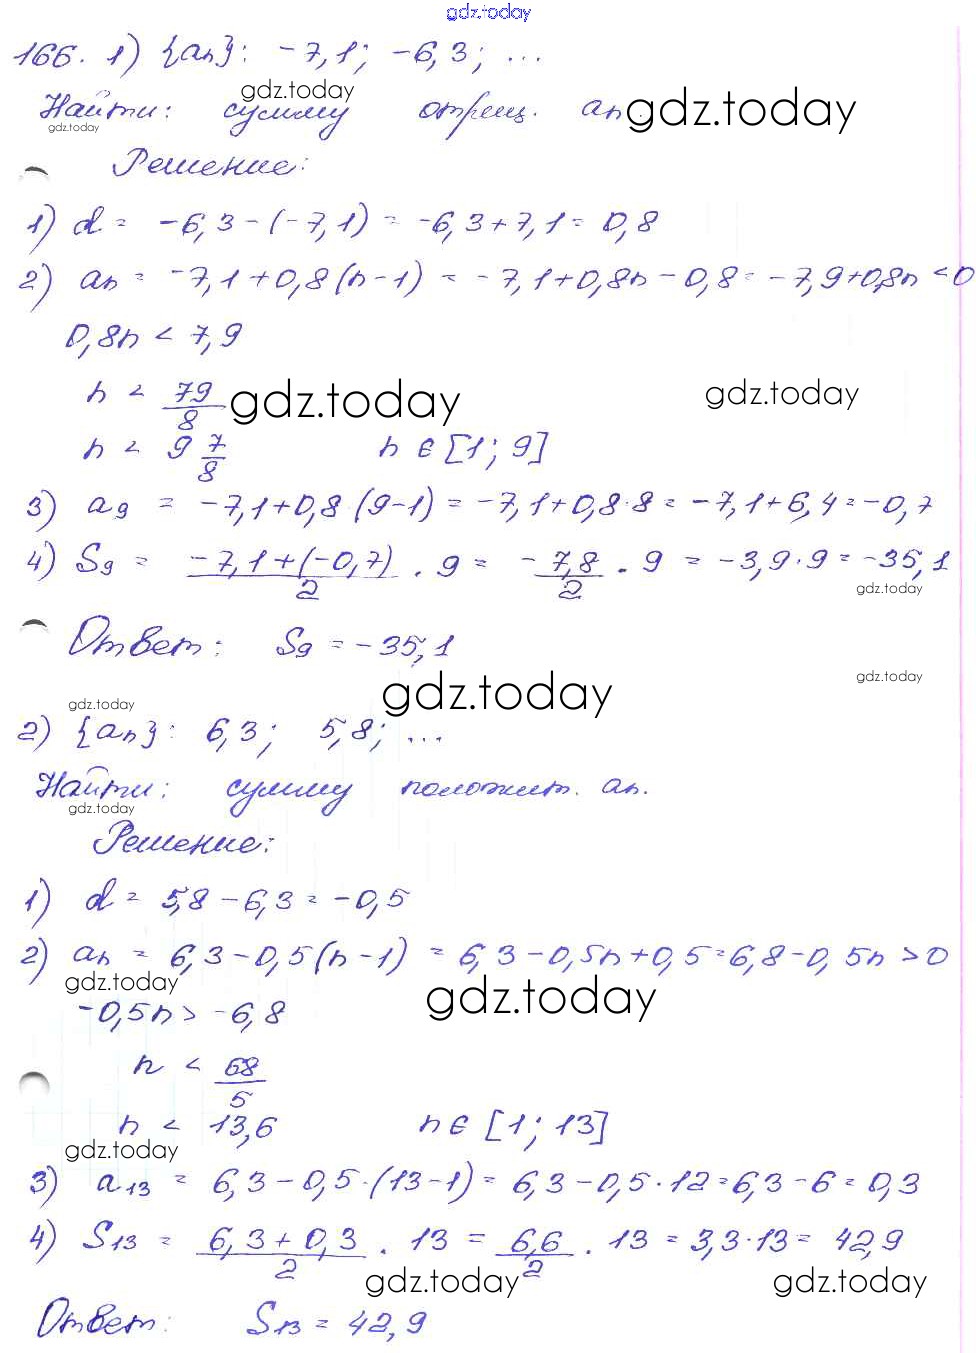 gdz.today
166. 1) {an}: -7,1; -6,3; ...
gdz.today
Найти: сумму отриц. an.
gdz.today
gdz.today
Решение:
1) d = -6,3-(-7,1) = -6,3+7,1 = 0,8
2) an = -7,1+0,8(n-1) = -7,1+0,8n-0,8 = -7,9+0,8n < 0
0,8n < 7,9
n < 79/8
gdz.today
gdz.today
n < 9 7/8 n ∈ [1; 9]
3) a9 = -7,1+0,8(9-1) = -7,1+0,8·8 = -7,1+6,4 = -0,7
4) S9 = (-7,1+(-0,7))/2 · 9 = -7,8/2 · 9 = -3,9·9 = -35,1
gdz.today
Ответ: S9 = -35,1
gdz.today
gdz.today
gdz.today
2) {an}: 6,3; 5,8; ...
Найти: сумму положит. an.
gdz.today
Решение:
1) d = 5,8-6,3 = -0,5
2) an = 6,3-0,5(n-1) = 6,3-0,5n+0,5 = 6,8-0,5n > 0
gdz.today
gdz.today
-0,5n > -6,8
n < 68/5
n < 13,6 n ∈ [1; 13]
gdz.today
3) a13 = 6,3-0,5·(13-1) = 6,3-0,5·12 = 6,3-6 = 0,3
4) S13 = (6,3+0,3)/2 · 13 = 6,6/2 · 13 = 3,3·13 = 42,9
gdz.today
gdz.today
Ответ: S13 = 42,9